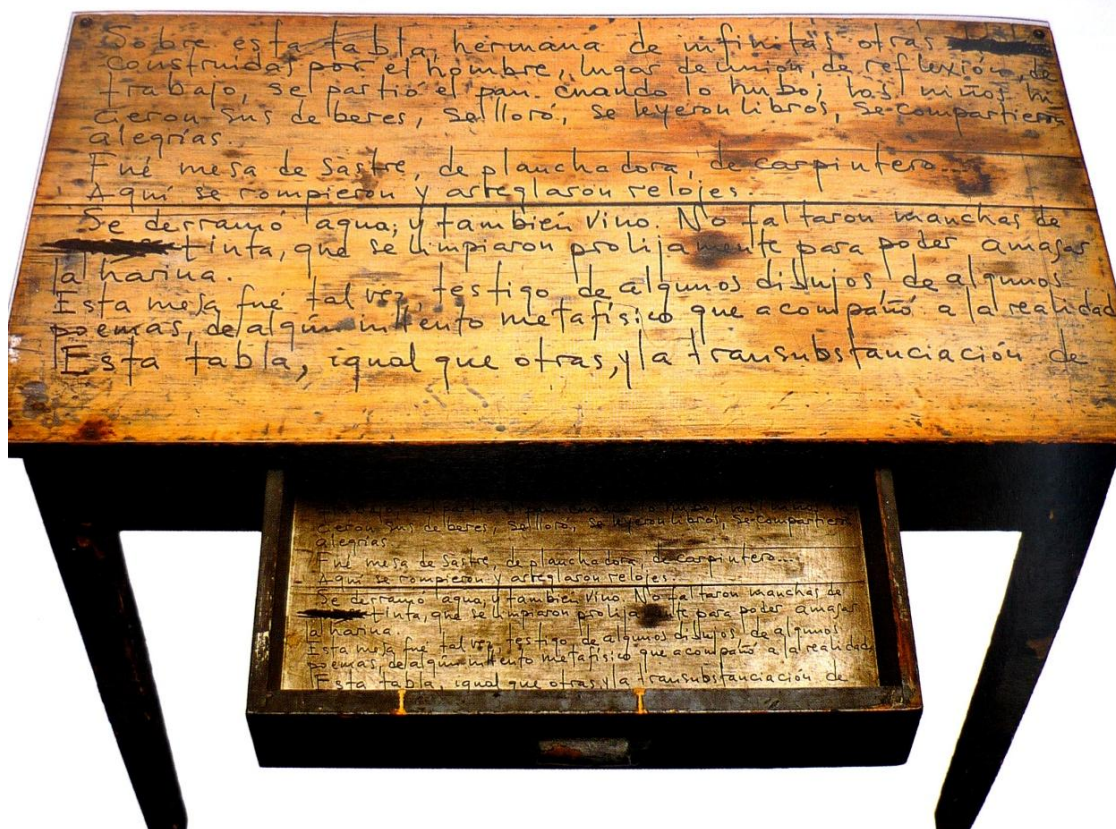 Sobre esta tabla, hermana de infinitas otras
construidas por el hombre, lugar de unión, de reflexión, de
trabajo, se partió el pan cuando lo hubo; los niños hi
cieron sus deberes, se lloró, se leyeron libros, se compartieron
alegrías
Fué mesa de sastre, de planchadora, de carpintero...
Aquí se rompieron y arreglaron relojes.
Se derramó agua, y también vino. No faltaron manchas de
tinta, que se limpiaron prolijamente para poder amasar
la harina.
Esta mesa fué tal vez, testigo de algunos dibujos, de algunos
poemas, de algún intento metafísico que acompañó a la realidad
Esta tabla, igual que otras, y la transubstanciación de
cieron sus deberes, se lloró, se leyeron libros, se compartieron
alegrías
Fué mesa de sastre, de planchadora, de carpintero...
Aquí se rompieron y arreglaron relojes.
Se derramó agua, y también vino. No faltaron manchas de
tinta, que se limpiaron prolijamente para poder amasar
la harina.
Esta mesa fué tal vez, testigo de algunos dibujos, de algunos
poemas, de algún intento metafísico que acompañó a la realidad
Esta tabla, igual que otras, y la transubstanciación de